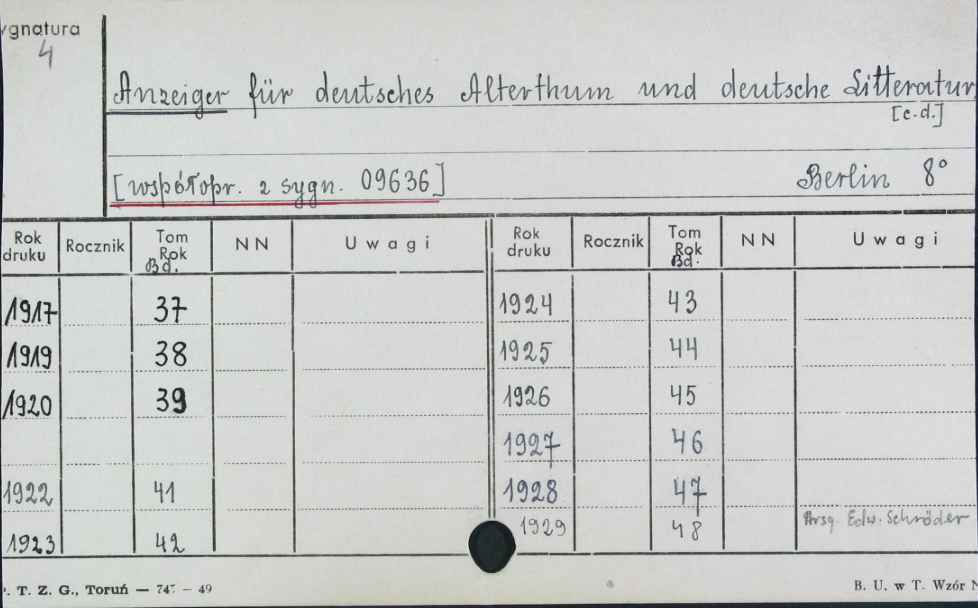 ygnatura
4
Anzeiger für deutsches Alterthum und deutsche Litteratur
[c.d.]
[współopr. z sygn. 09636]
Berlin 8°
Rok druku Rocznik Tom Rok Bd. NN Uwagi Rok druku Rocznik Tom Rok Bd. NN Uwagi
1917 37 1924 43
1919 38 1925 44
1920 39 1926 45
1927 46
1922 41 1928 47
1923 42 1929 48 Hrsg. Edw. Schröder
. T. Z. G., Toruń — 747 — 49
B. U. w T. Wzór N